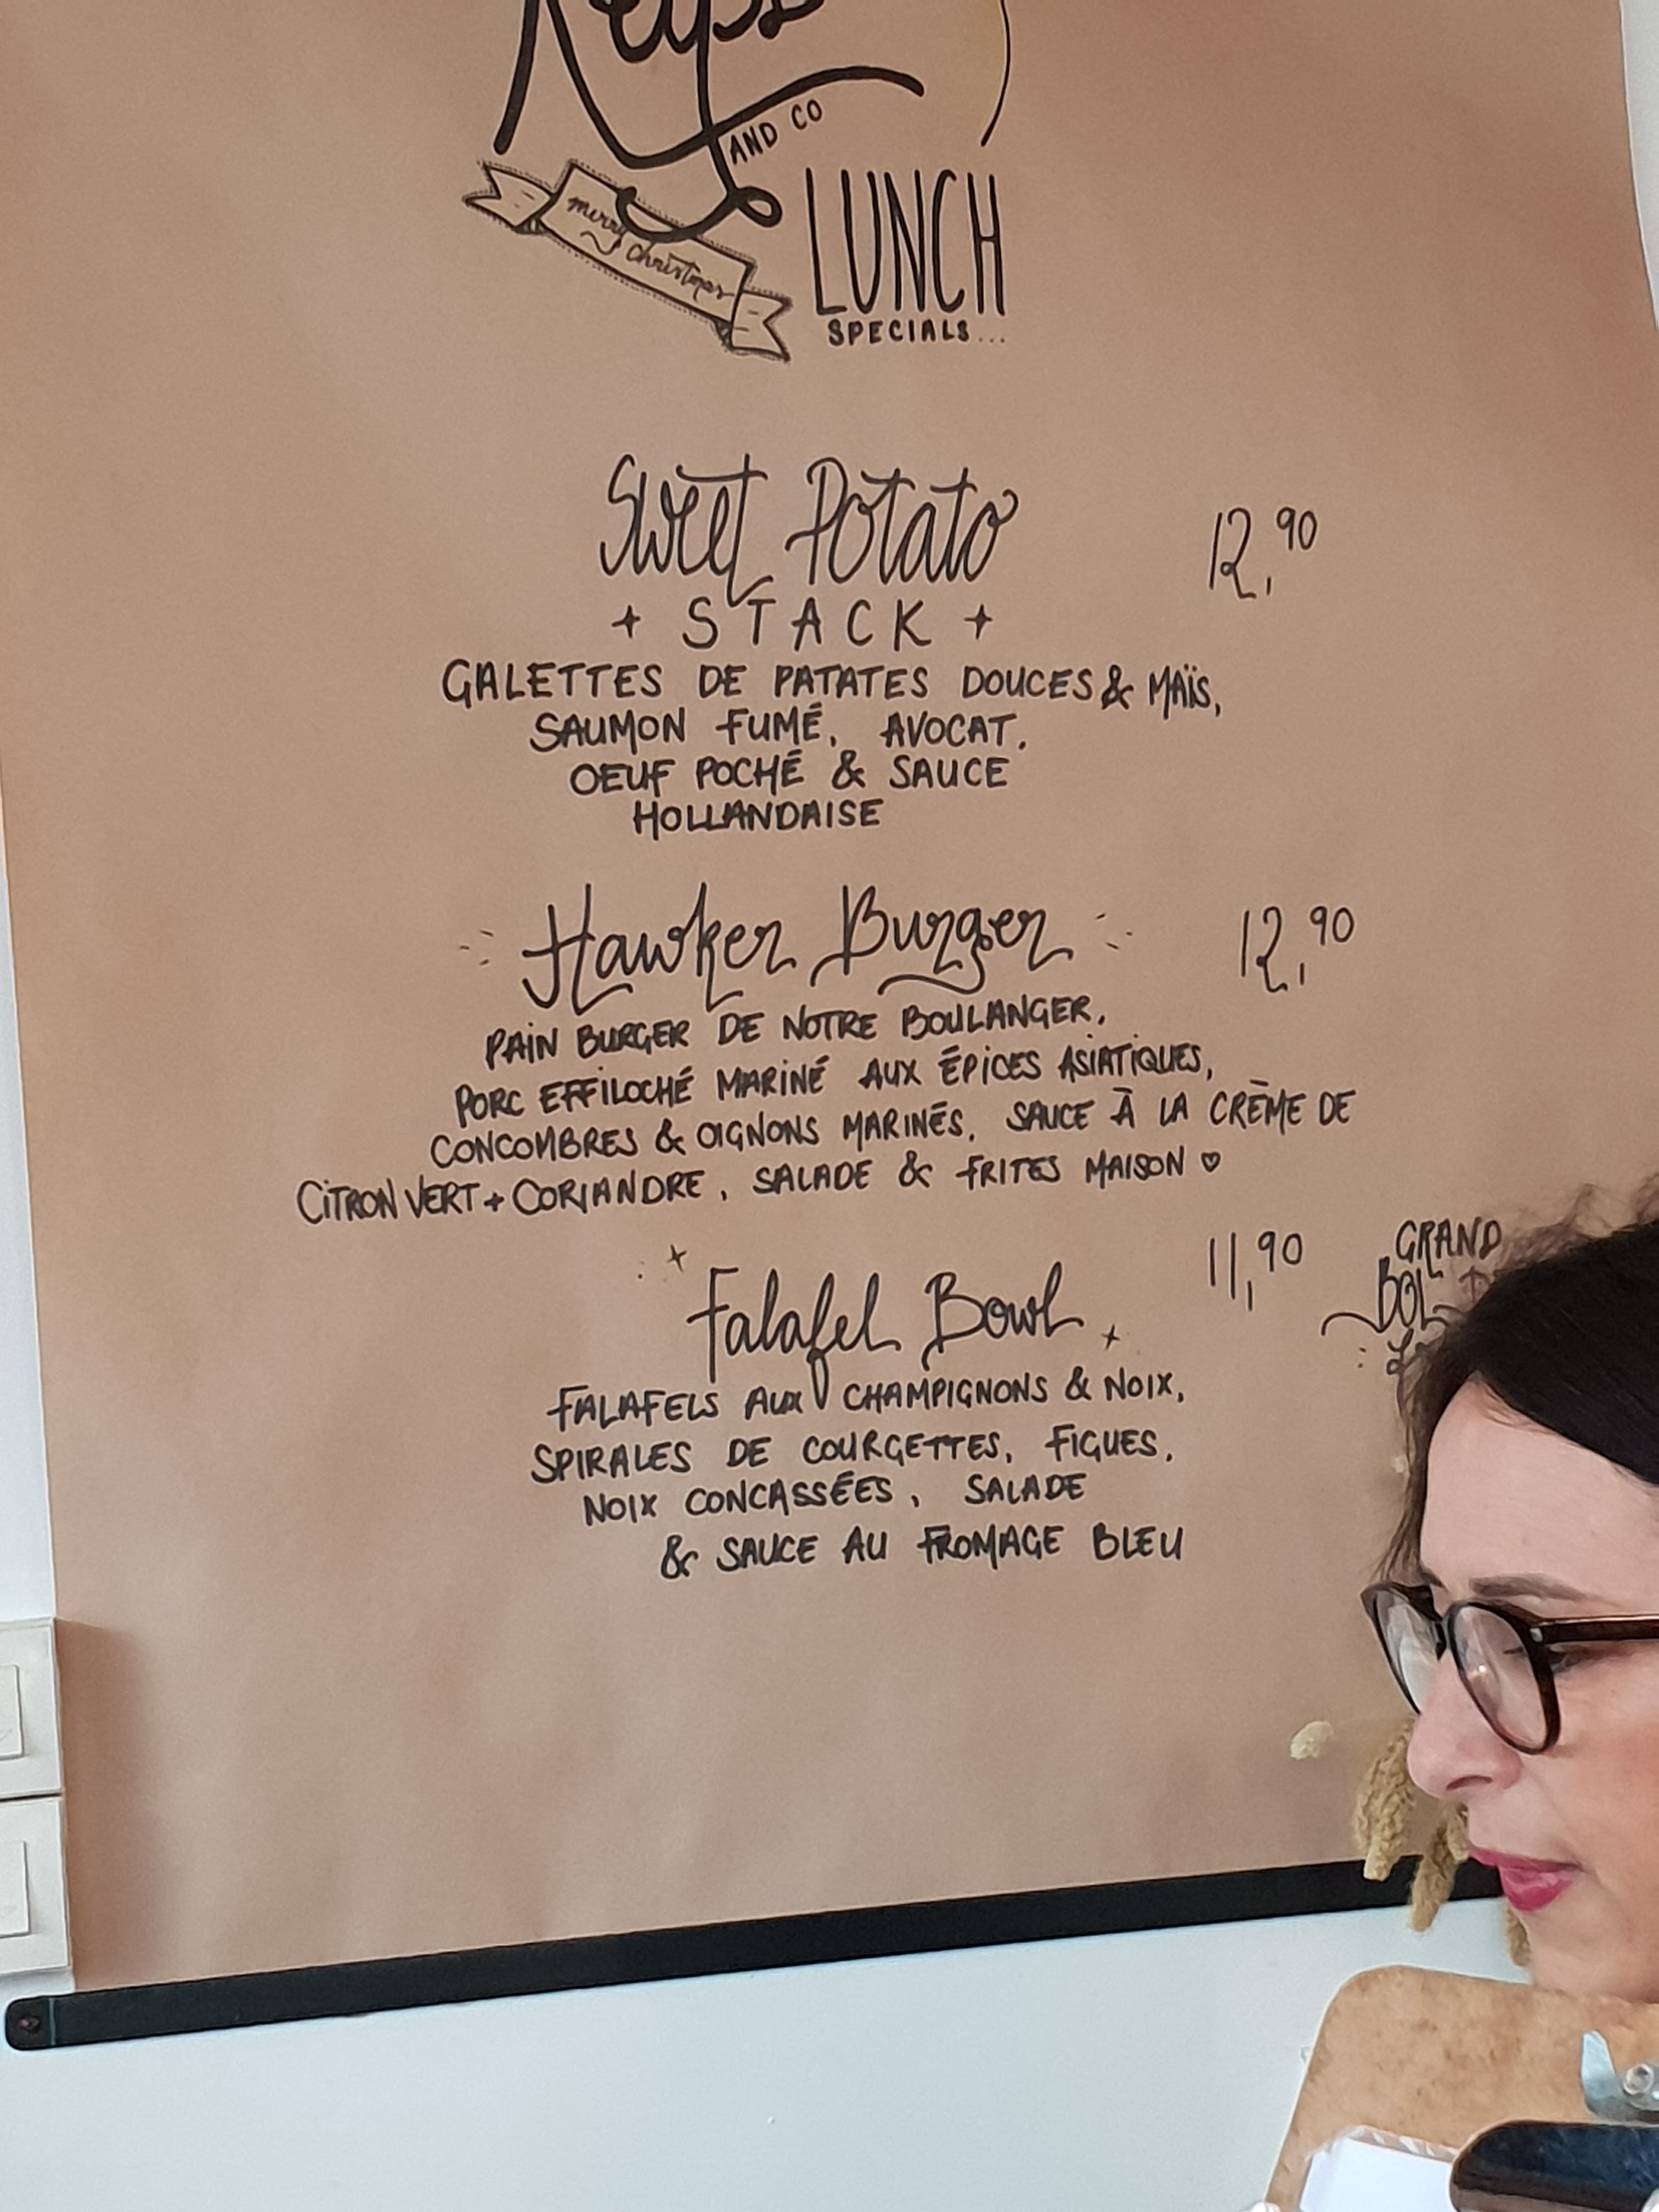 AND CO
merry christmas
LUNCH
SPECIALS...
Sweet Potato
12,90
+ STACK +
GALETTES DE PATATES DOUCES & MAÏS,
SAUMON FUMÉ, AVOCAT,
OEUF POCHÉ & SAUCE
HOLLANDAISE
Hawker Burger
12,90
PAIN BURGER DE NOTRE BOULANGER,
PORC EFFILOCHÉ MARINÉ AUX ÉPICES ASIATIQUES,
CONCOMBRES & OIGNONS MARINÉS, SAUCE À LA CRÈME DE
CITRON VERT + CORIANDRE, SALADE & FRITES MAISON ♡
Falafel Bowl
11,90
GRAND
BOL
FALAFELS AUX CHAMPIGNONS & NOIX,
SPIRALES DE COURGETTES, FIGUES,
NOIX CONCASSÉES, SALADE
& SAUCE AU FROMAGE BLEU